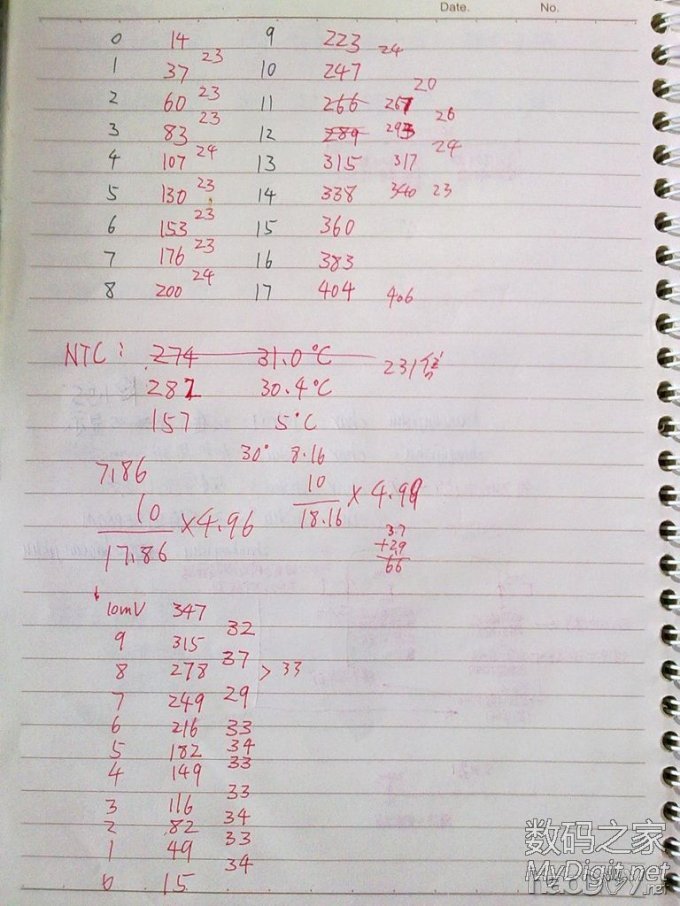 Date. No.
0 14 9 223
23 24
1 37 10 247
23 20
2 60 11 266 267
23 26
3 83 12 289 293
24 24
4 107 13 315 317
5 130 23 14 338 340 23
23
6 153 15 360
23
7 176 16 383
24
8 200 17 404 406
NTC: 274 31.0°C 231倍
281 30.4°C
157 5°C
30° 8.16
7.86
10
18.16
×4.99
10
17.86
×4.96
37
+29
66
↓10mV 347
32
9 315
37
8 278 > 33
29
7 249
33
6 216
34
5 182
33
4 149
33
3 116
34
2 82
33
1 49
34
0 15
数码之家
MyDigit.net